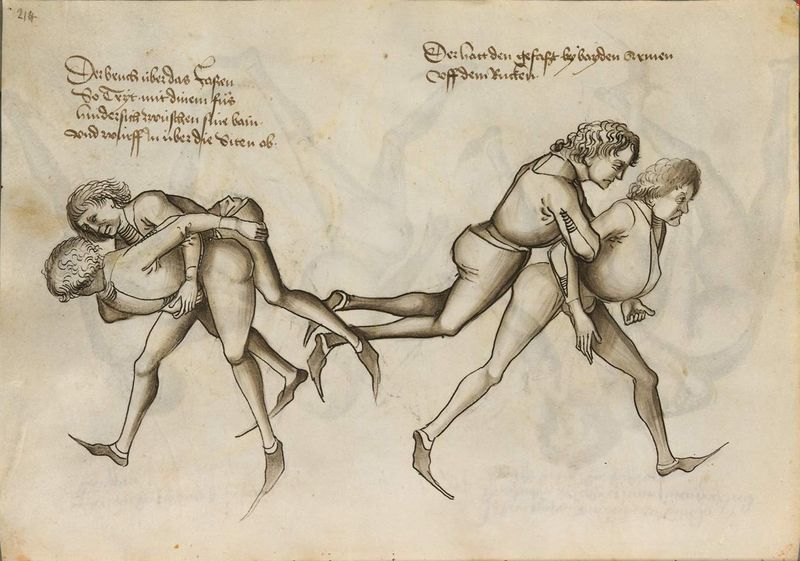 214
Der bruch über das Fassen
So Tryt mit dinem fůs
hindersich zwüschen sine bain
vnd wurff in über die Siten ab
Der hatt den gefasst by bayden Armen
vff dem Rucken